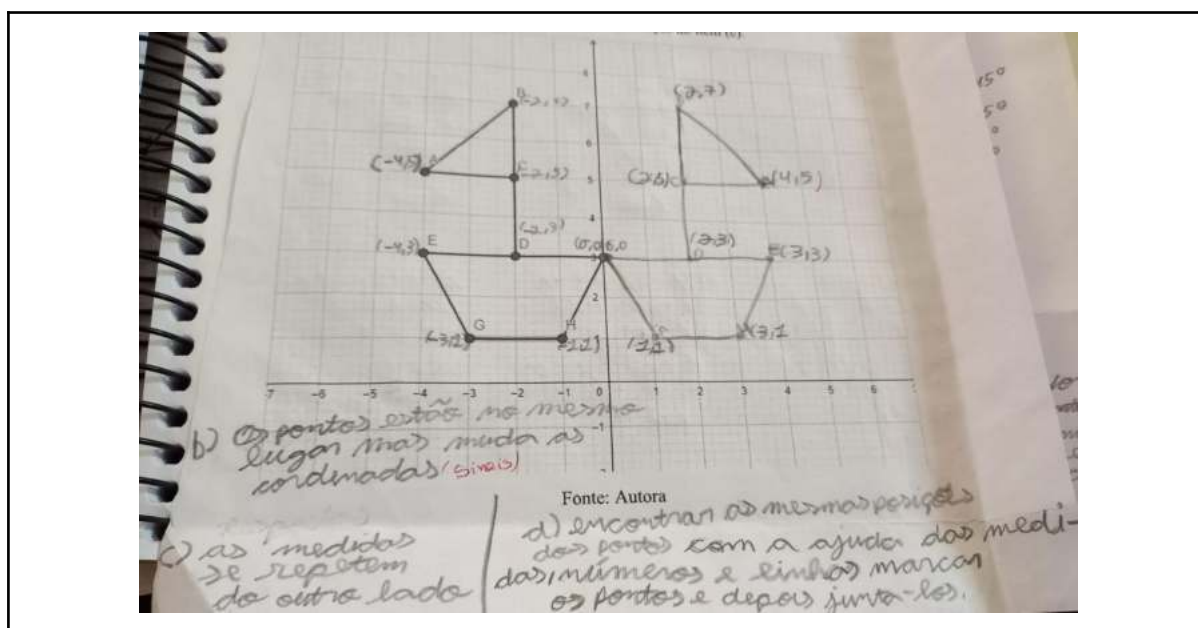 (c).
B
(2,7)
7
(-4,5) A
C
(-2,5)
5
C
(4,5)
4
(-2,3)
(-4,3) E
D
3
D
E(3,3)
2
G
H
(3,1
-7 -5 -4 -3 -2 -1 0 1 2 3 4 5 6
-1
b) Os pontos estão no mesmo
lugar mas muda as
cordenadas (sinais)
Fonte: Autora
c) as medidas
se repetem
do outro lado
d) encontrar as mesmas posições
dos pontos com a ajuda das medi-
das, números e linhas marcar
os pontos e depois junta-los.
15°
5°